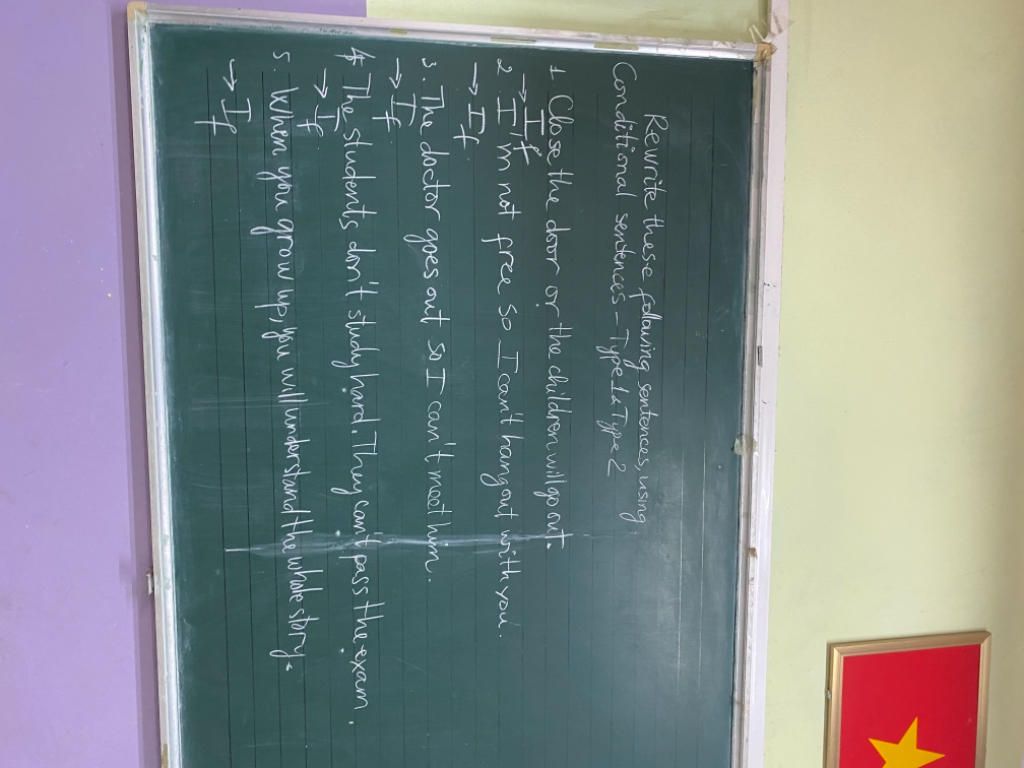 Rewrite these following sentences, using
Conditional sentences - Type 1 & Type 2
1. Close the door or the children will go out.
→ If
2. I'm not free so I can't hang out with you.
→ If
3. The doctor goes out so I can't meet him.
→ If
4. The students don't study hard. They can't pass the exam.
→ If
5. When you grow up, you will understand the whole story.
→ If